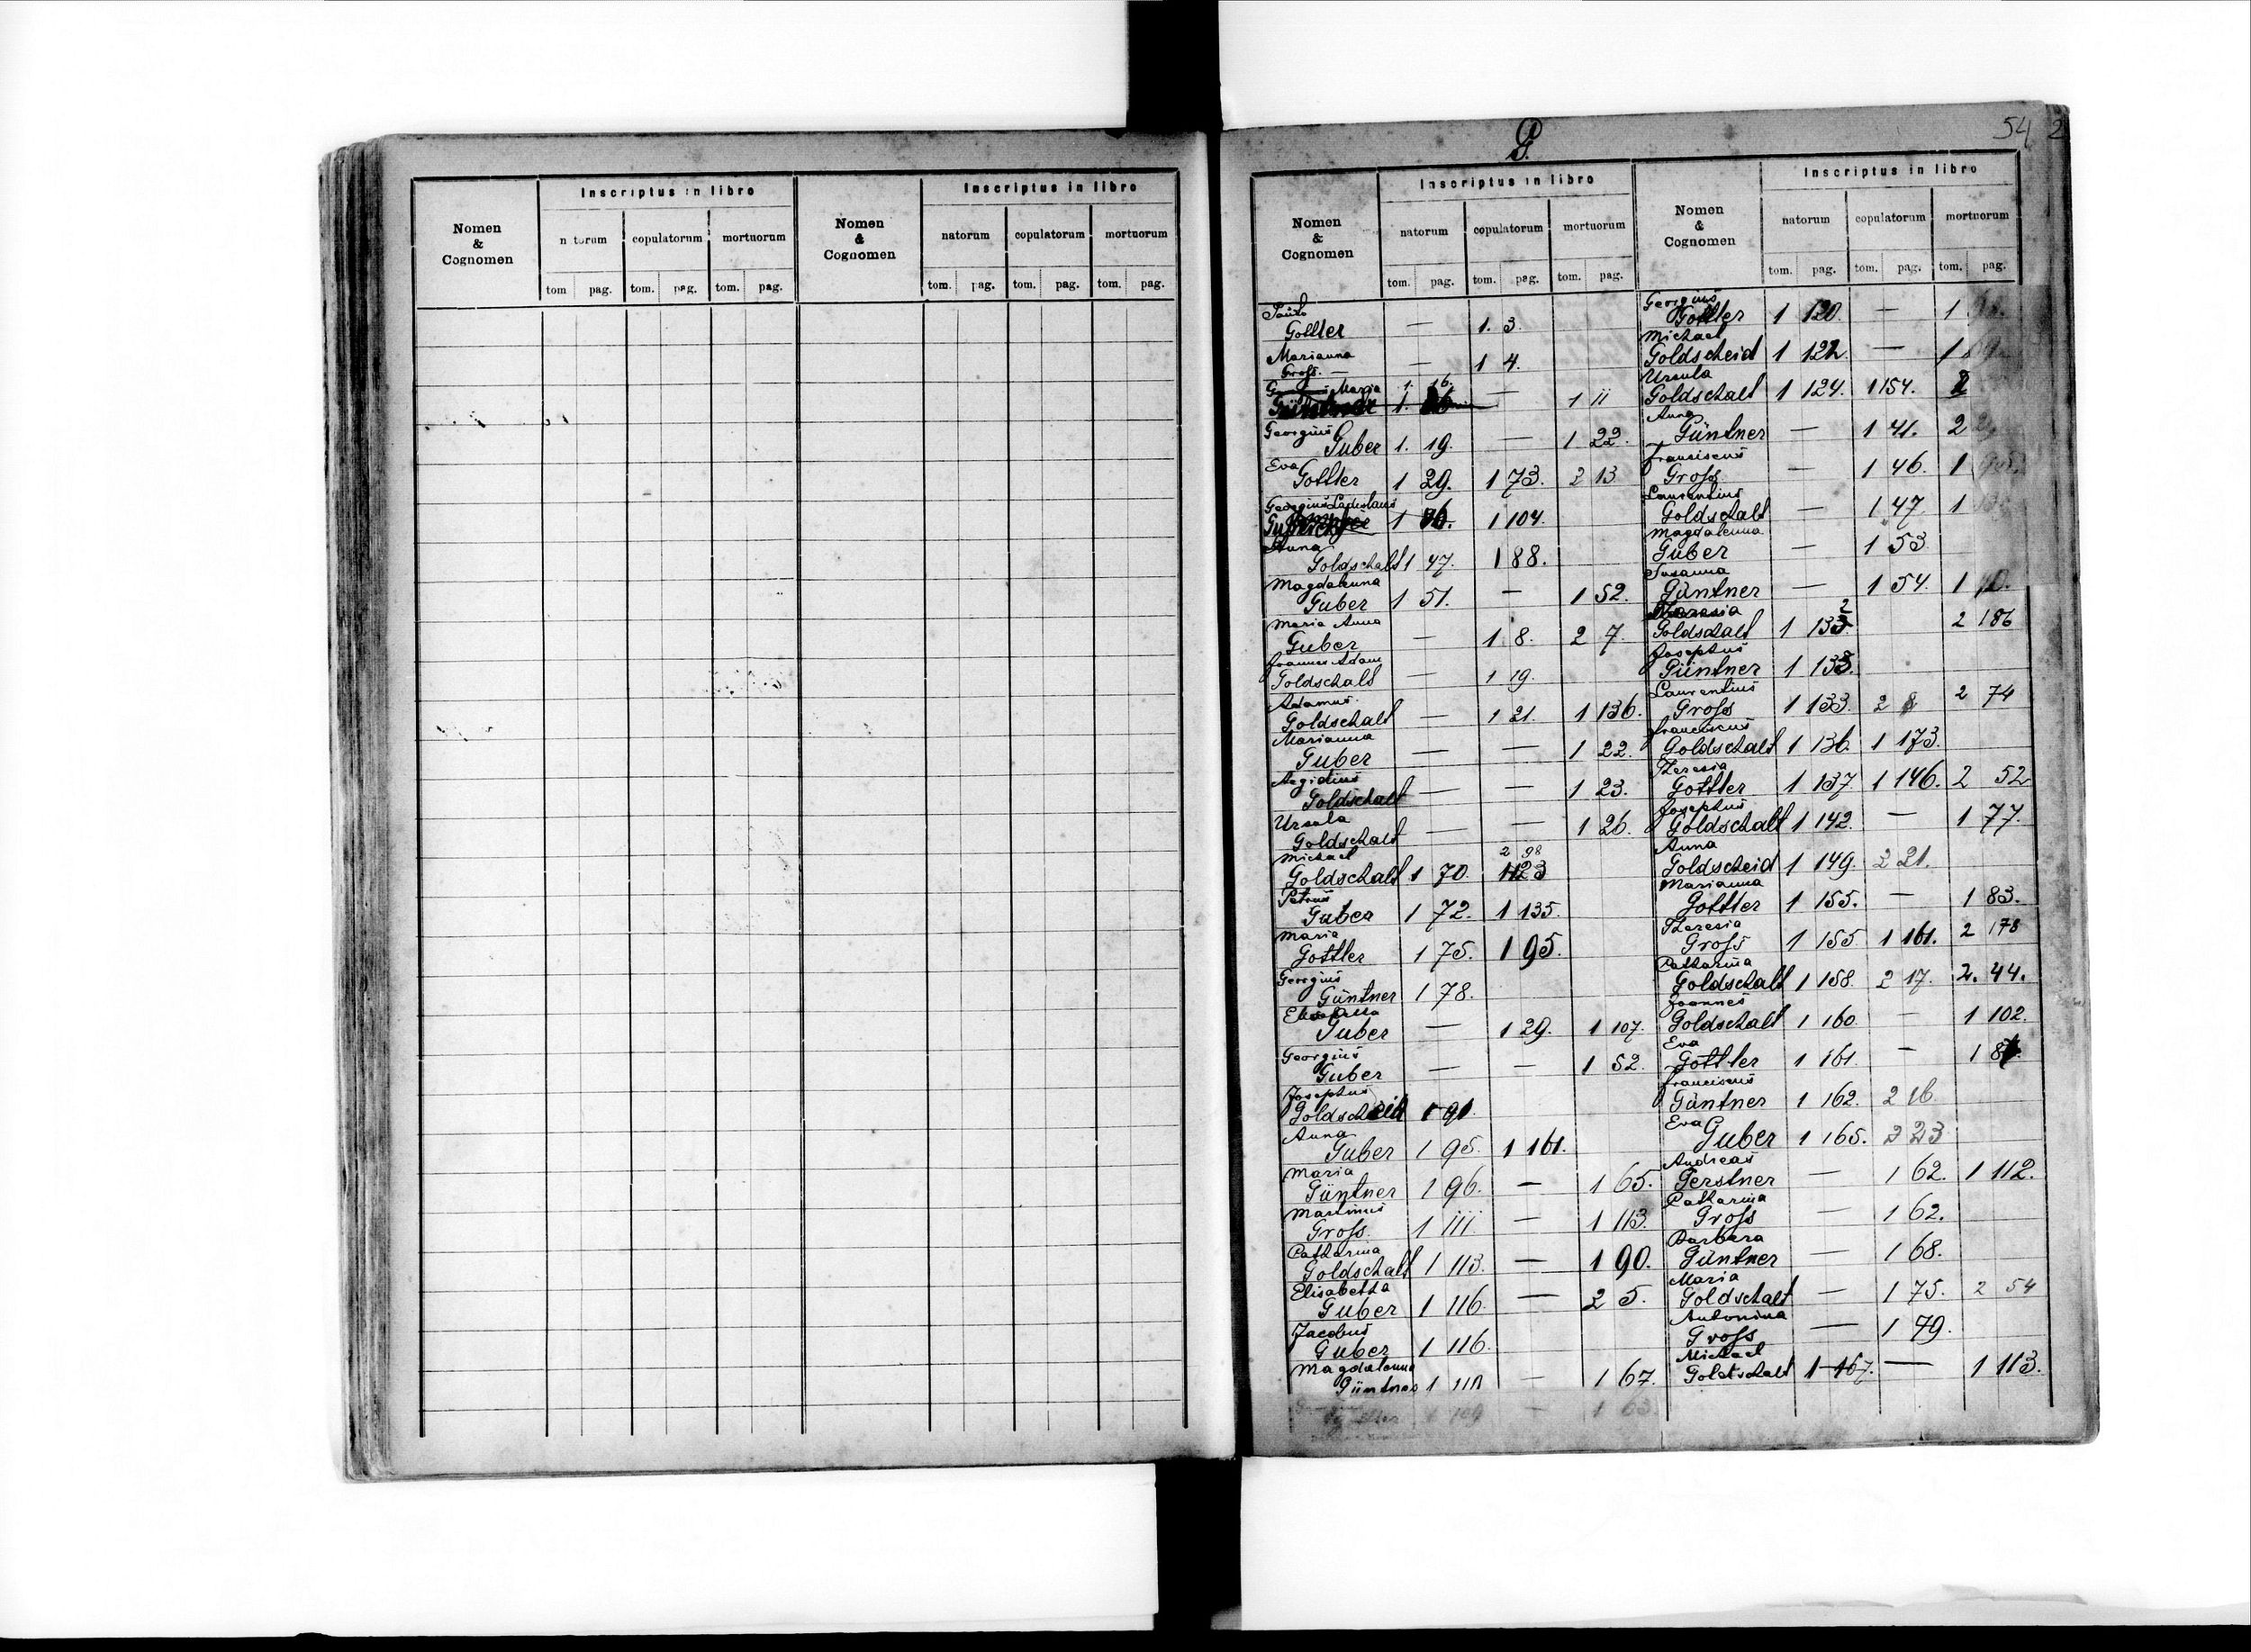 Inscriptus in libro
Inscriptus in libro
Nomen & Cognomen
n torum copulatorum mortuorum
Nomen & Cognomen
natorum copulatorum mortuorum
tom pag. tom. pag. tom. pag.
tom. pag. tom. pag. tom. pag.
G.
54
2
Inscriptus in libro
Inscriptus in libro
Nomen & Cognomen
natorum copulatorum mortuorum
Nomen & Cognomen
natorum copulatorum mortuorum
tom. pag. tom. pag. tom. pag.
tom. pag. tom. pag. tom. pag.
Gottler — 1. 3.
Marianna
Gross. — — 1 4.
Maria 1. 16.
1. — 1 11
Georgius
Guber 1. 19. — 1 22.
Eva
Gottler 1 29. 1 73. 2 13
Georgius Ladislaus
1 36. 1 104.
Anna
Goldschalt 1 47. 1 88.
Magdalenna
Guber 1 51. — 1 52.
Maria Anna
Guber — 1 8. 2 7.
Joannes Adam
Goldschalt — 1 19.
Adamus
Goldschalt — 1 21. 1 136.
Marianna
Guber — — 1 22.
Aegidius
Goldschalt — — 1 23.
Ursula
Goldschalt — — 1 26.
Michael 2 98
Goldschalt 1 70. 1123
Petrus
Guber 1 72. 1 135.
Maria
Gottler 1 75. 1 95.
Georgius
Güntner 1 78.
Elisabetha
Guber — 1 29. 1 107.
Georgius
Guber — — 1 52.
Josephus
Goldscheid 1 91.
Anna
Guber 1 95. 1 161.
Maria
Güntner 1 96. — 1 65.
Martinus
Gross. 1 111. — 1 113.
Catharina
Goldschalt 1 113. — 1 90.
Elisabetha
Guber 1 116. — 2 5.
Jacobus
Guber 1 116.
Magdalenna
Güntner 1 118 — 1 67.
1 109 — 1 63.
Georgius
Gottler 1 120. — 1
Michael
Goldscheid 1 122. — 1
Ursula
Goldschalt 1 124. 1 154. 2
Anna
Güntner — 1 41. 2
Franciscus
Gross — 1 46. 1
Laurentius
Goldschalt — 1 47 1
Magdalenna
Guber — 1 53
Susanna
Güntner — 1 54. 1
Theresia 2
Goldschalt 1 133. 2 186
Josephus
Güntner 1 133.
Laurentius
Gross 1 133. 2 8 2 74
Franciscus
Goldschalt 1 136. 1 173.
Theresia
Gottler 1 137. 1 146. 2 52
Josephus
Goldschalt 1 142. — 1 77.
Anna
Goldscheid 1 149. 2 21.
Marianna
Gottler 1 155. — 1 83.
Theresia
Gross 1 155 1 161. 2 178
Catharina
Goldschalt 1 158. 2 17. 2. 44.
Joannes
Goldschalt 1 160. — 1 102.
Eva
Gottler 1 161 — 1
Franciscus
Güntner 1 162. 2 16.
Eva
Guber 1 165. 2 23
Andreas
Gerstner — 1 62. 1 112.
Catharina
Gross — 1 62.
Barbara
Güntner — 1 68.
Maria
Goldschalt — 1 75. 2 54
Antonina
Gross — 1 79.
Michael
Goldschalt 1 167. — 1 113.